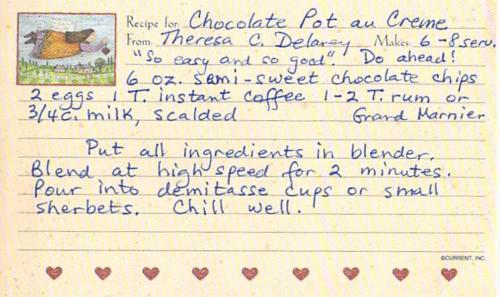 Recipe for Chocolate Pot au Creme
From Theresa C. Delaney Makes 6-8 serv.
"So easy and so good". Do ahead!
6 oz. semi-sweet chocolate chips
2 eggs 1 T. instant coffee 1-2 T. rum or
3/4 c. milk, scalded Grand Marnier
Put all ingredients in blender.
Blend at high speed for 2 minutes.
Pour into demitasse cups or small
sherbets. Chill well.
©CURRENT, INC.